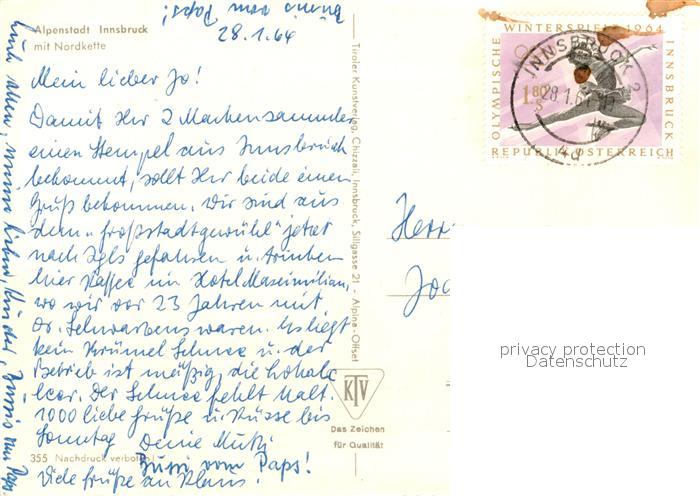 Alpenstadt Innsbruck
mit Nordkette
28.1.64
Mein lieber Jo!
Damit Ihr 2 Markensammler
einen Stempel aus Innsbruck
bekommt, sollt Ihr beide einen
Gruß bekommen. Wir sind aus
dem „Großstadtgewühl" jetzt
nach Igls gefahren u. trinken
hier Kaffee im Hotel Maximilian,
wo wir vor 23 Jahren mit
Dr. Schwarbens waren. Es liegt
kein Krümel Schnee u. der
Betrieb ist mäßig, die Lokale
leer. Der Schnee fehlt halt.
1000 liebe Grüße u. Küsse bis
Sonntag Deine Mutti
Bussi vom Paps!
355 Nachdruck verboten!
Viele Grüße an Klaus!
Euch allen, meine lieben Kinder, Bussis vom Paps
Bussi vom Paps!
Tiroler Kunstverlag, Chizzali, Innsbruck, Sillgasse 21 - Alpina-Offset
KTV
Das Zeichen
für Qualität
OLYMPISCHE WINTERSPIELE 1964 INNSBRUCK
1.80
S
REPUBLIK ÖSTERREICH
INNSBRUCK 2
28.1.64
4d
Herr
Jo
privacy protection
Datenschutz